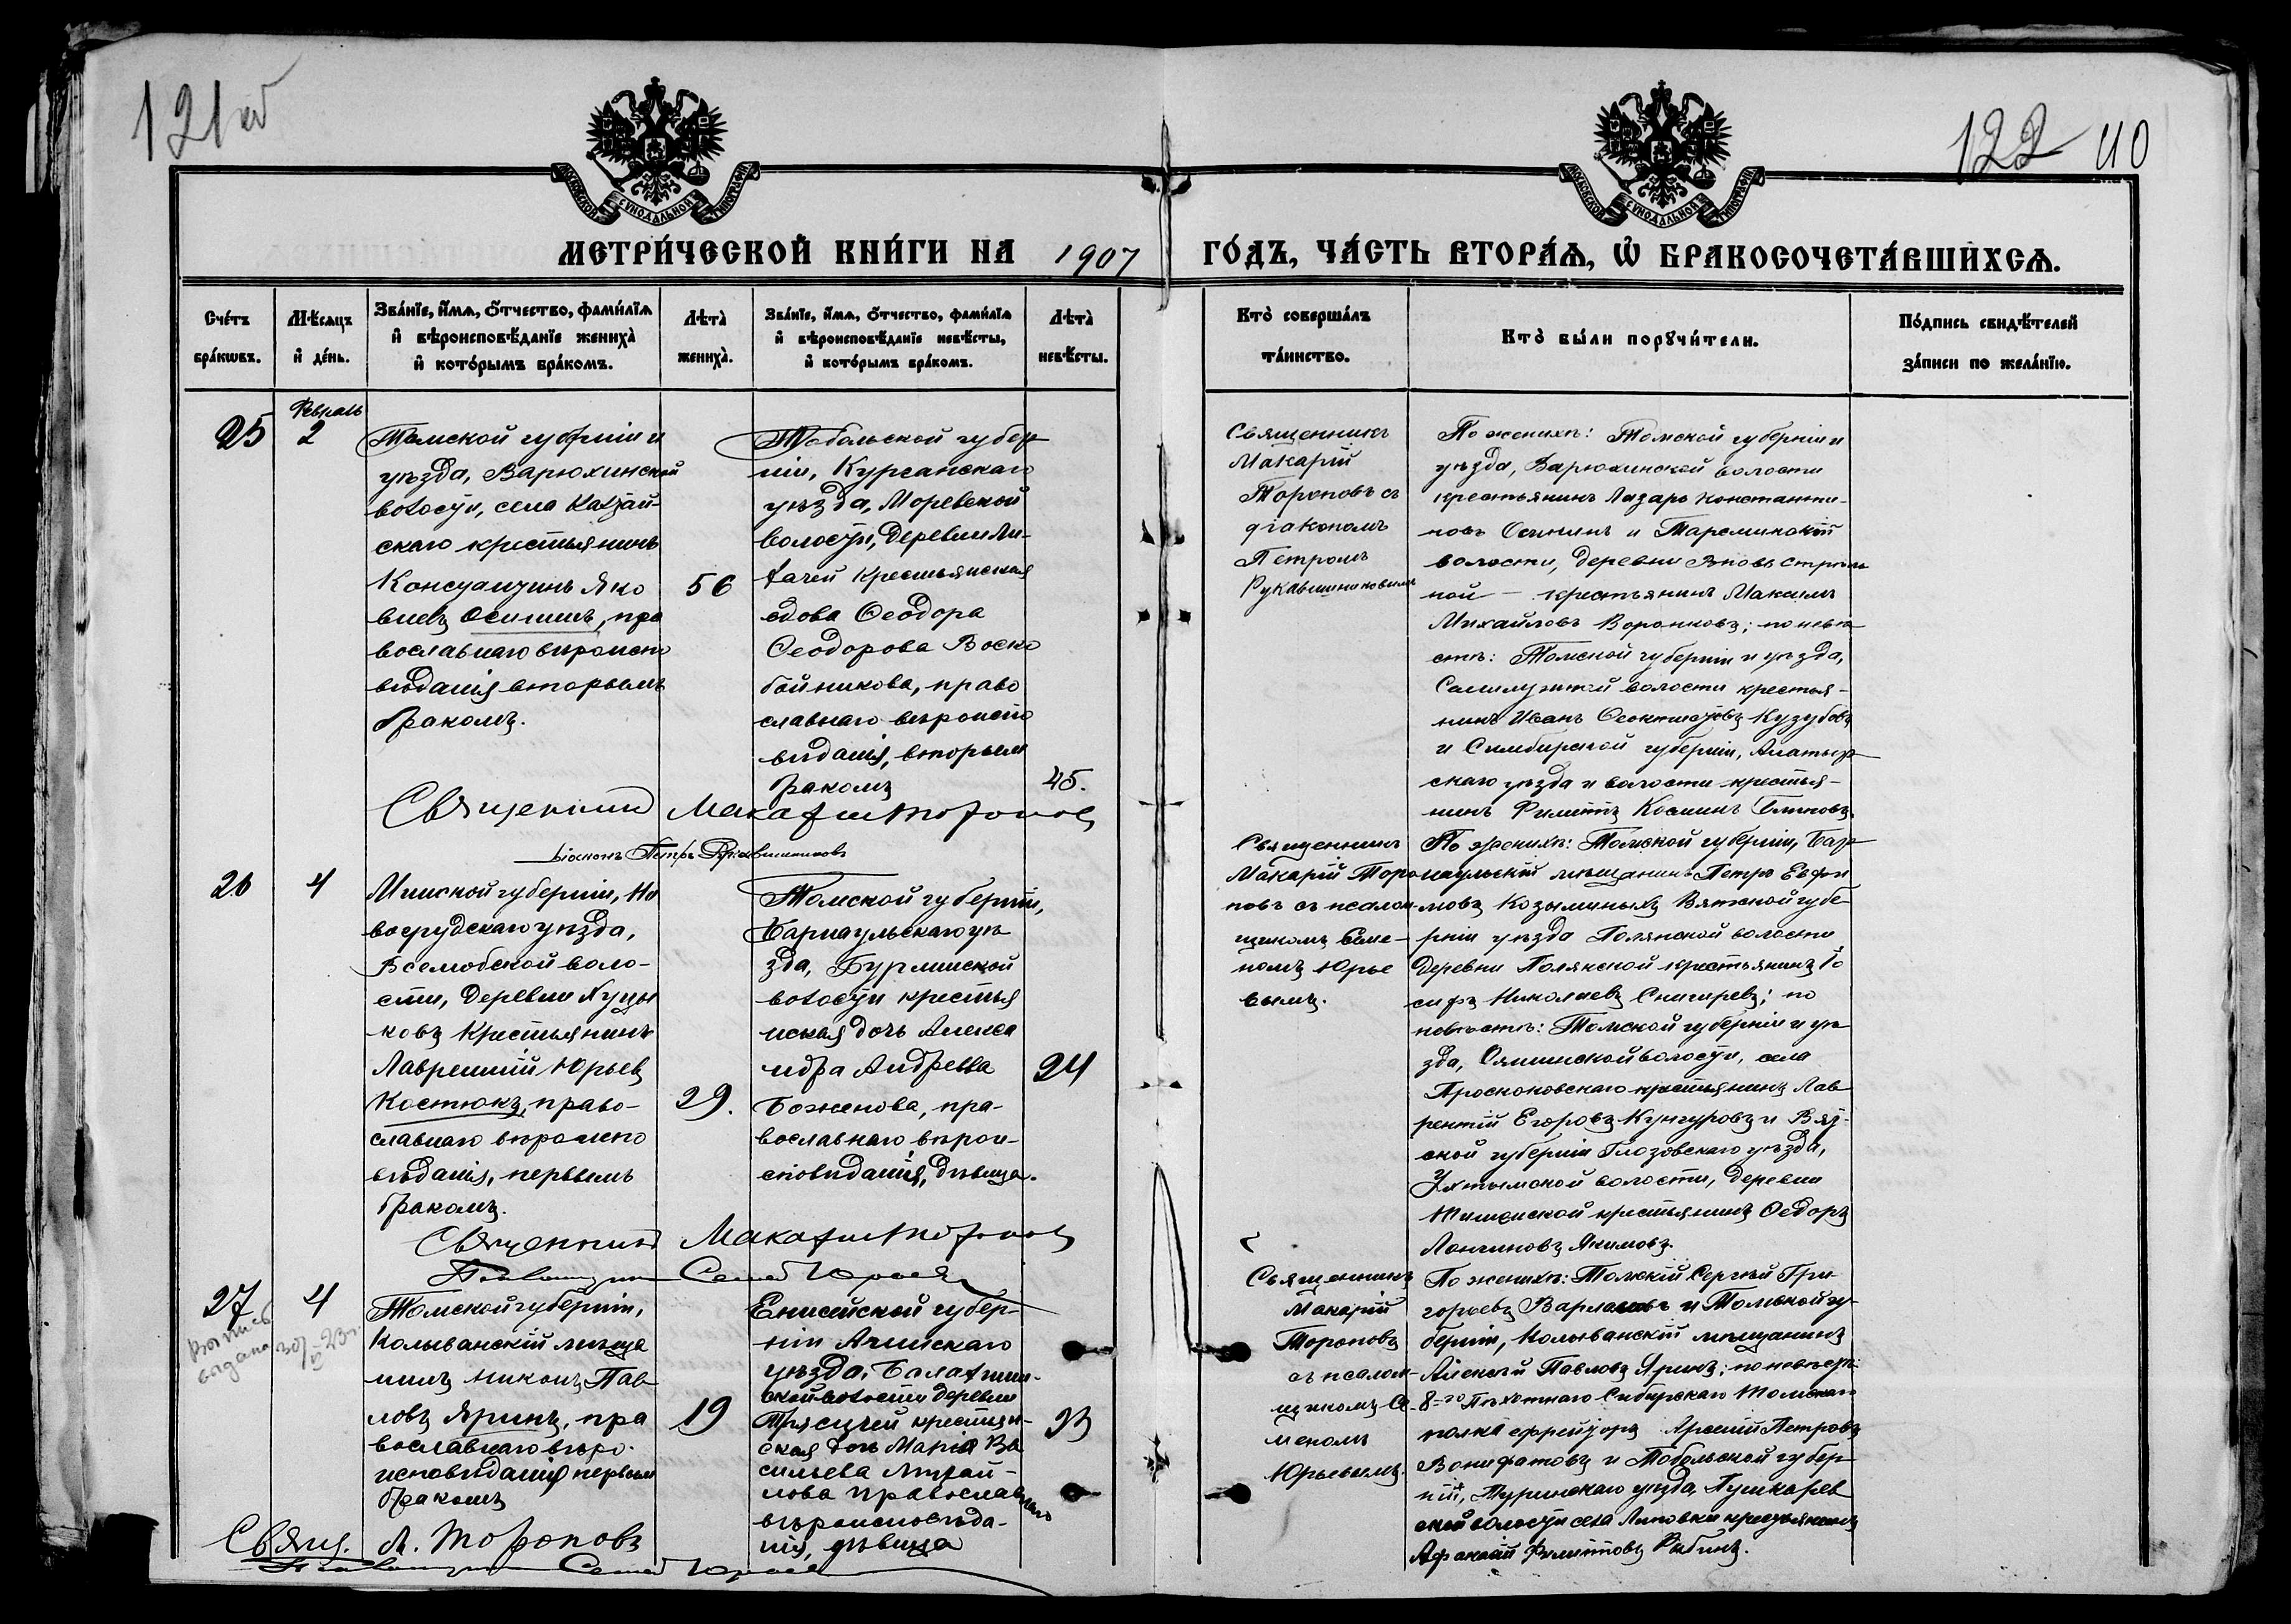 121об
122 40
МОСКОВСКОЙ СѴНОДАЛЬНОЙ ТИПОГРАФІИ
МОСКОВСКОЙ СѴНОДАЛЬНОЙ ТИПОГРАФІИ
МЕТРИ́ЧЕСКОЙ КНИ́ГИ НА 1907 ГО́ДЪ, ЧА́СТЬ ВТОРА́Ѧ, Ѽ БРАКОСОЧЕТА́ВШИХСѦ.
Сче́тъ бра́кѡвъ.
Мѣ́сяцъ и де́нь.
Зва́нїе, и́мѧ, о́тчество, фами́лїѧ
и вѣроисповѣ́данїе жениха̀
и кото́рымъ бра́комъ.
Лѣта̀ жениха̀.
Зва́нїе, и́мѧ, о́тчество, фами́лїѧ
и вѣроисповѣ́данїе невѣ́сты,
и кото́рымъ бра́комъ.
Лѣта̀ невѣ́сты.
Кто̀ соверша́лъ та́инство.
Кто̀ бы́ли порꙋчи́тели.
По́дпись свидѣ́телей за́писи по жела́нїю.
25
Февраль
2
Томской губерніи и
уѣзда, Варюхинской
волости, села Калтай-
скаго крестьянинъ
Константинъ Яко
влевъ Осининъ, пра
вославнаго вѣроиспо
вѣданія вторымъ
бракомъ.
56
Тобольской губер
ніи, Курганскаго
уѣзда, Моревской
волости, деревни
крестьянская
вдова Ѳеодора
Ѳеодорова Воско
бойникова, право
славнаго вѣроиспо
вѣданія, вторым
бракомъ
45.
Священникъ
Макарій
Тороповъ съ
діакономъ
Петромъ
Рукавишниковымъ
По женихѣ: Томской губерніи и
уѣзда, Варюхинской волости
крестьянинъ Лазарь Константи-
новъ Осининъ и Тарсминской
волости, деревни Вновь Строен
ной - крестьянинъ Максимъ
Михайловъ Воронковъ; по невѣ
стѣ: Томской губерніи и уѣзда,
Семилужной волости крестья-
нинъ Иванъ Ѳеоктистовъ Кузубовъ
и Симбирской губерніи, Алатыр
скаго уѣзда и волости крестья-
нинъ Филиппъ Косминъ Блиновъ.
Священникъ Макарій Тороповъ
Діаконъ Петръ Рукавишниковъ
26
4
Минской губерніи, Но
вогрудскаго уѣзда,
Вселюбской воло-
сти, деревни
ковъ крестьянинъ
Лаврентій Юрьевъ
Костюкъ, право-
славнаго вѣроиспо
вѣданія, первымъ
бракомъ.
29.
Томской губерніи,
Барнаульскаго уѣ
зда, Бурлинской
волости крестья
нская дочь Алекса
ндра Андреева
Боженова, пра-
вославнаго вѣрои-
сповѣданія, дѣвица.
24
Священникъ
Макарій Торо
повъ съ псалом-
щикомъ Семе-
номъ Юрье
вымъ.
По женихѣ: Томской губерніи, Бар
наульскій мѣщанинъ Петръ Евфи
мовъ Козьминыхъ Вятской губе-
рніи уѣзда Полянской волости
деревни Полянской крестьянинъ Іо
сифъ Николаевъ Снигиревъ; по
невѣстѣ: Томской губерніи и уѣ
зда, Ояшинской волости, села
Проскоковскаго крестьянинъ Лав
рентій Егоровъ Кунгуровъ и Вят-
ской губерніи Глазовскаго уѣзда,
Ухтымской волости, деревни
крестьянинъ Ѳедоръ
Лонгиновъ Якимовъ.
Священникъ Макарій Тороповъ
Псаломщикъ Семенъ Юрьевъ
27
4
Выпись
выдана 30/V 23 г.
Томской губерніи,
Колыванскій мѣща
нинъ Никонъ Пав
ловъ Яринъ, пра
вославнаго вѣро-
исповѣданія первым
бракомъ
19
Енисейской губер-
ніи Ачинскаго
уѣзда, Балахтин-
ской волости деревни
Трясучей крестьян-
ская дочь Марія Ва
сильева Михай-
лова православнаго
вѣроисповѣда-
нія, дѣвица
23
Священникъ
Макарій
Тороповъ
съ псалом-
щикомъ Се-
меномъ
Юрьевымъ.
По женихѣ: Томскій Сергѣй Гри
горьевъ Варлаковъ и Томской гу-
берніи, Колыванскій мѣщанинъ
Алексѣй Павловъ Яринъ; по невѣстѣ:
8-го Пѣхотнаго Сибирскаго Томскаго
полка ефрейторъ Арсеній Петровъ
Вонифатовъ и Тобольской губер
ніи, Туринскаго уѣзда, Пушкарев
ской волости села Липовки крестьянинъ
Афанасій Филипповъ Рябинъ.
Свящ. М. Тороповъ
Псаломщикъ Семенъ Юрьевъ